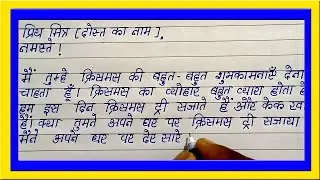 प्रिय मित्र [दोस्त का नाम],
नमस्ते !
मैं तुम्हे क्रिसमस की बहुत-बहुत शुभकामनाएँ देना
चाहता हूँ। क्रिसमस का व्योहार बहुत प्यारा होता है
हम इस दिन क्रिसमस ट्री सजाते हैं और केक खा
हैं। क्या तुमने अपने घर पर क्रिसमस ट्री सजाया
मैंने अपने घर पर ढेर सारे